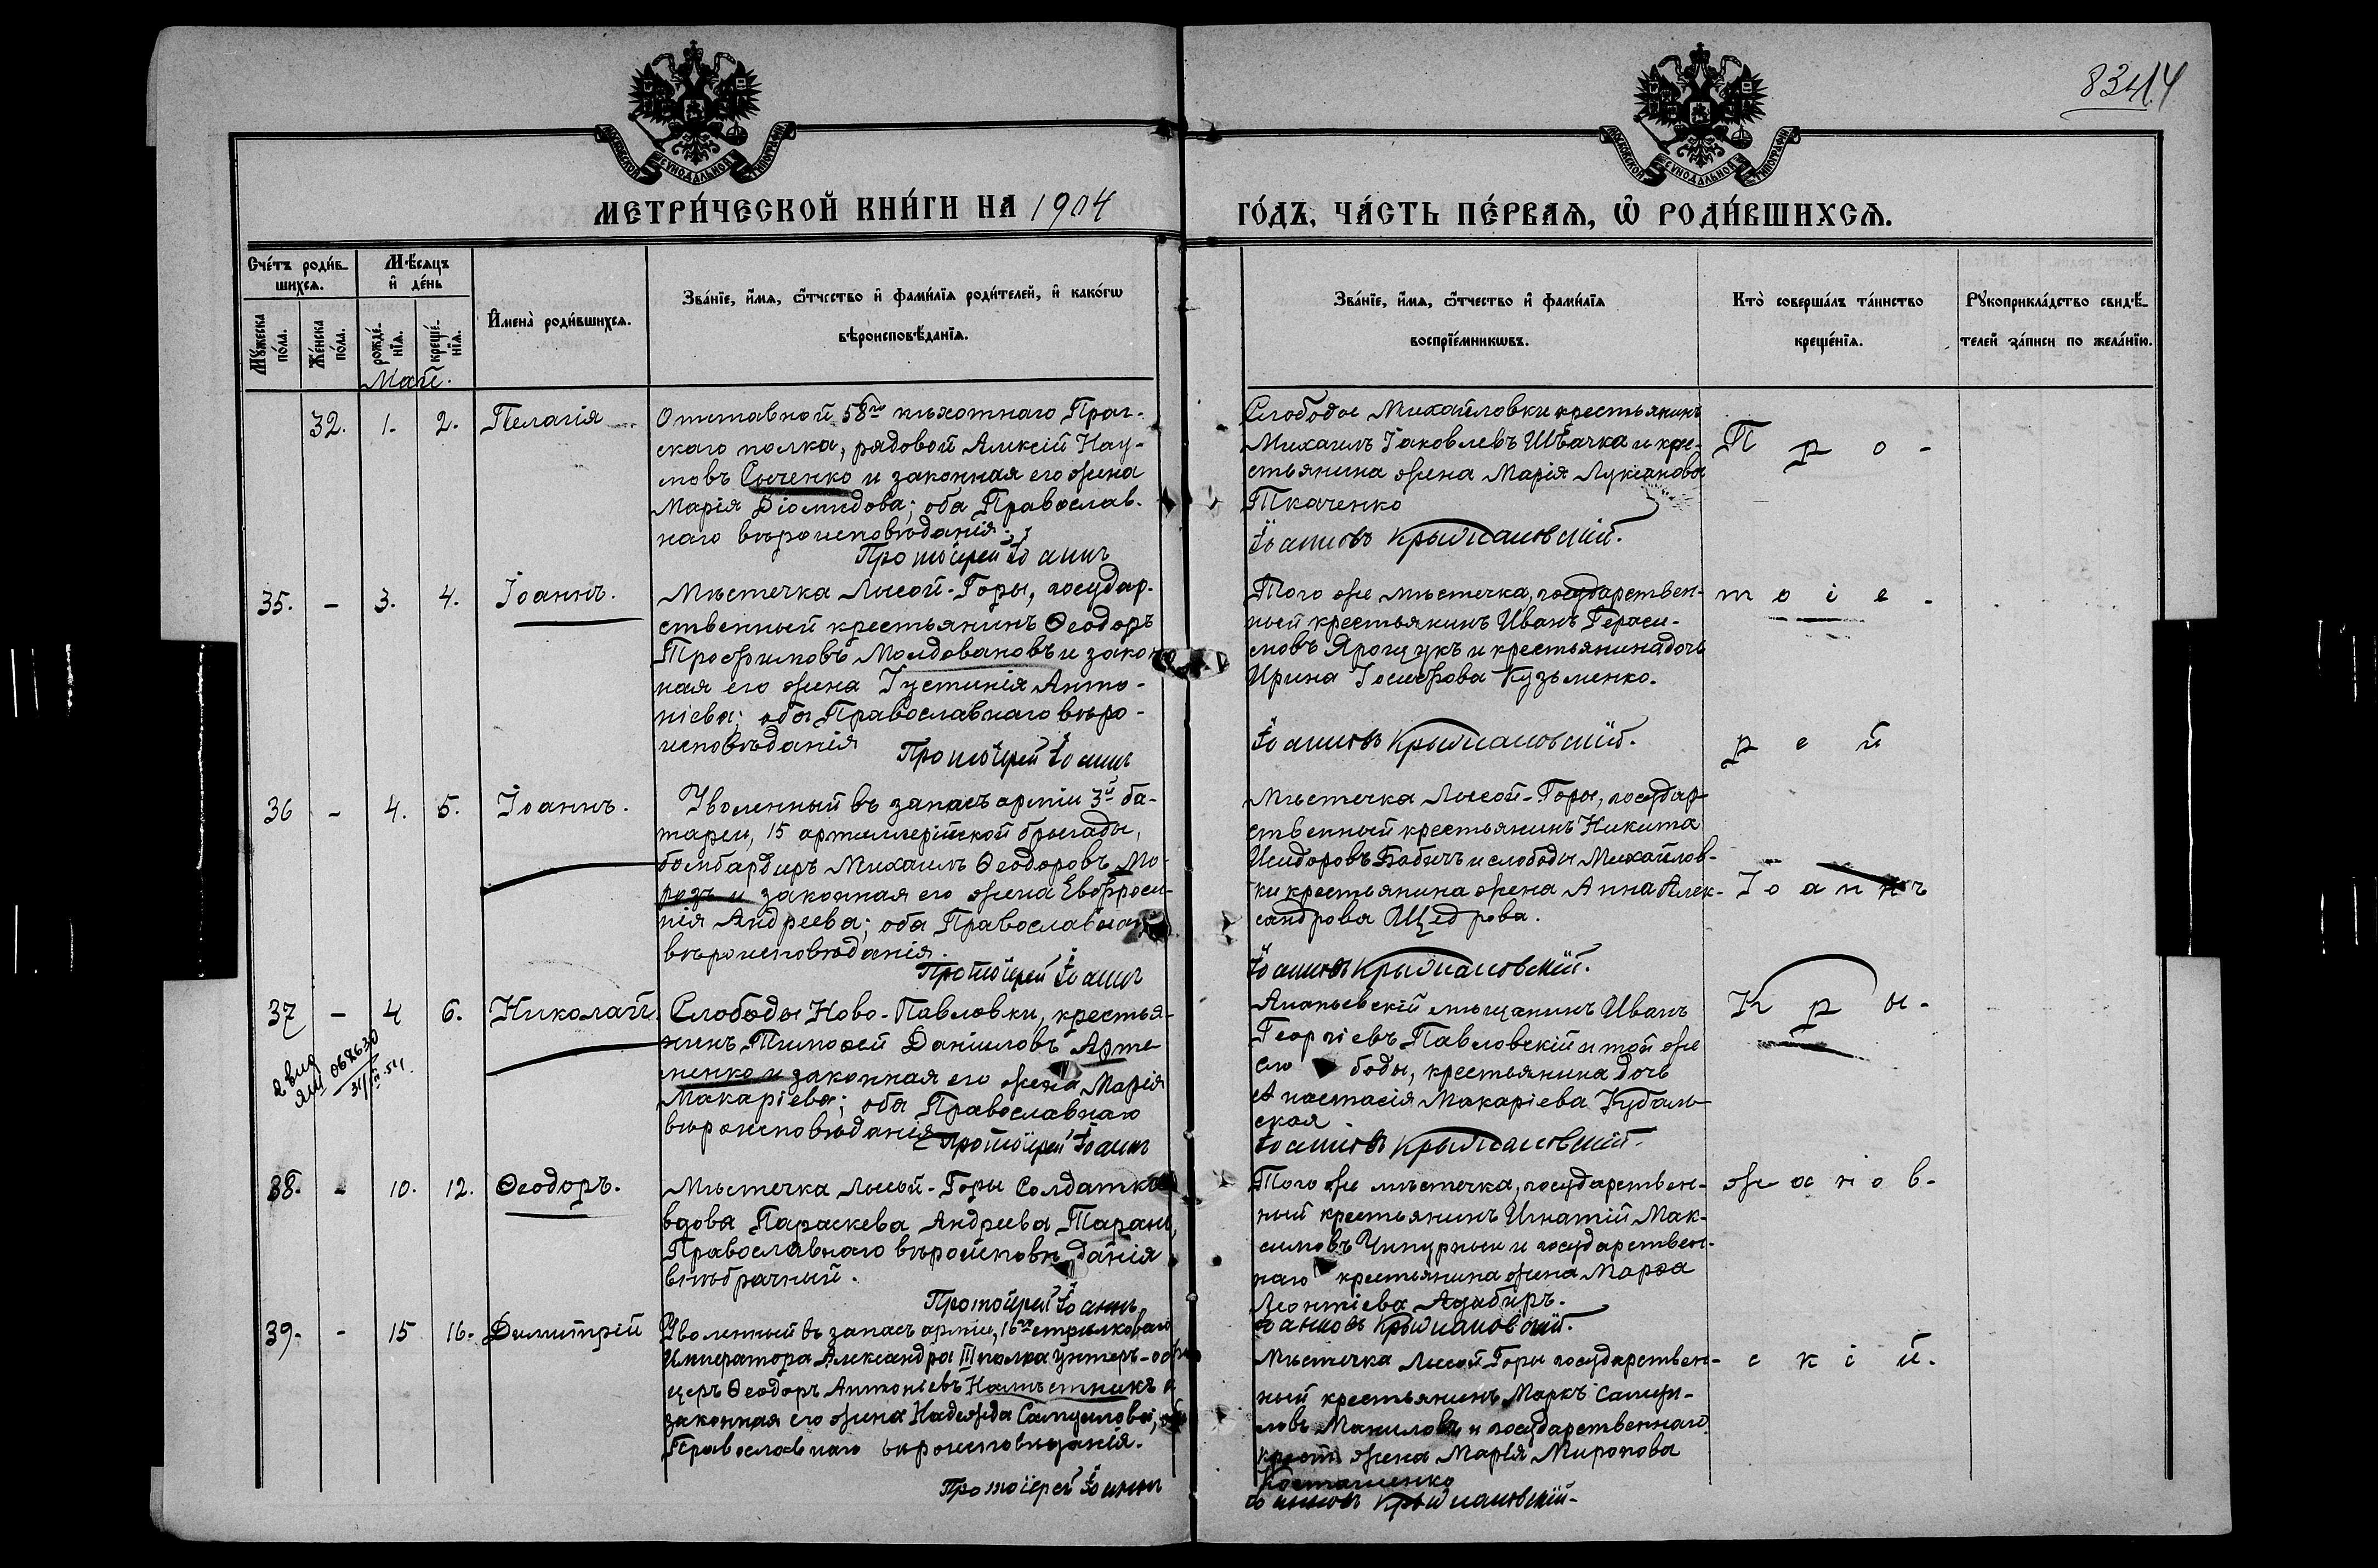 834
14
МОСКОВСКОЙ СУНОДАЛЬНОЙ ТИПОГРАФІИ
МОСКОВСКОЙ СУНОДАЛЬНОЙ ТИПОГРАФІИ
МЕТРИ́ЧЕСКОЙ КНИ́ГИ НА 1904
ГО́ДЪ, ЧА́СТЬ ПЕ́РВАѦ, Ѡ҆ РОДИ́ВШИХСѦ.
Сче́тъ роди́в-
шихсѧ.
Мѣ́сѧцъ
и҆ де́нь
Мꙋ́жеска
по́ла.
Же́нска
по́ла.
рожде́-
нїѧ.
креще́-
нїѧ.
И҆мена̀ роди́вшихсѧ.
Зва́нїе, и҆́мѧ, ѻ҆́тчество и҆ фами́лїѧ роди́телей, и҆ како́гѡ
вѣроисповѣ́данїѧ.
Зва́нїе, и҆́мѧ, ѻ҆́тчество и҆ фами́лїѧ
воспрїе́мникѡвъ.
Кто̀ соверша́лъ та́инство
креще́нїѧ.
Рꙋкоприкла́дство свидѣ́-
телей за́писи по жела́нїю.
Май.
32. 1. 2. Пелагія
Отставной 58го пѣхотнаго Праг-
скаго полка, рядовой Алексій Нау-
мовъ Сыченко и законная его жена
Марія Діомидова; оба Православ-
наго вѣроисповѣданія.
Протоіерей Іоаннъ
Слободы Михайловки крестьянинъ
Михаилъ Іаковлевъ Швачка и кре-
стьянина жена Марія Лукіанова
Ткаченко
Іоанновъ Крыжановскій.
П р о -
35. - 3. 4. Іоаннъ.
Мѣстечка Лысой-Горы, государ-
ственный крестьянинъ Ѳеодоръ
Трофимовъ Молдовановъ и закон
ная его жена Іустинія Анто-
ніева; оба Православнаго вѣро-
исповѣданія
Протоіерей Іоаннъ
Того же мѣстечка, государствен-
ный крестьянинъ Иванъ Гераси-
мовъ Ярощукъ и крестьянина дочь
Ирина Іосифова Кузьменко.
Іоанновъ Крыжановскій.
т о і е -
р е й
36 - 4. 5. Іоаннъ.
Уволенный въ запасъ арміи 3й ба-
тареи, 15 артиллерійской бригады,
бомбардиръ Михаилъ Ѳеодоровъ Мо-
розъ и законная его жена Евфроси-
нія Андреева; оба Православнаго
вѣроисповѣданія.
Протоіерей Іоаннъ
Мѣстечка Лысой-Горы, государ-
ственный крестьянинъ Никита
Исидоровъ Бабичъ и слободы Михайлов-
ки крестьянина жена Анна Алек-
сандрова Щедрова.
Іоанновъ Крыжановскій.
І о а н н ъ
37 - 4 6. Николай
Слободы Ново-Павловки, крестья-
нинъ Тимоѳей Даніиловъ Арте-
менко и законная его жена Марія
Макаріева; оба Православнаго
вѣроисповѣданія
Протоіерей Іоаннъ
Ананьевскій мѣщанинъ Иванъ
Георгіевъ Павловскій и той же
сло боды, крестьянина дочь
Анастасія Макаріева Кубаль-
ская
Іоанновъ Крыжановскій.
К р ы -
38. - 10. 12. Ѳеодоръ.
Мѣстечка Лысой-Горы Солдатка
вдова Параскева Андреева Таранъ,
Православнаго вѣроисповѣданія
внѣбрачный.
Протоіерей Іоаннъ
Того же мѣстечка, государствен-
ный крестьянинъ Игнатій Мак-
симовъ и государствен-
наго крестьянина жена Марѳа
Леонтіева
Іоанновъ Крыжановскій.
ж а н о в -
39. - 15 16. Димитрій
Уволенный въ запасъ арміи, 16го стрѣлковаго
Императора Александра III полка унтеръ-офи
церъ Ѳеодоръ Антоніевъ Намѣстникъ и
законная его жена Надежда Самуилова; оба
Православнаго вѣроисповѣданія.
Протоіерей Іоаннъ
Мѣстечка Лысой Горы государствен-
ный крестьянинъ Маркъ Самуи-
ловъ Маниловъ и государственнаго
крест. жена Марія Миронова
Іоанновъ Крыжановскій.
с к і й.